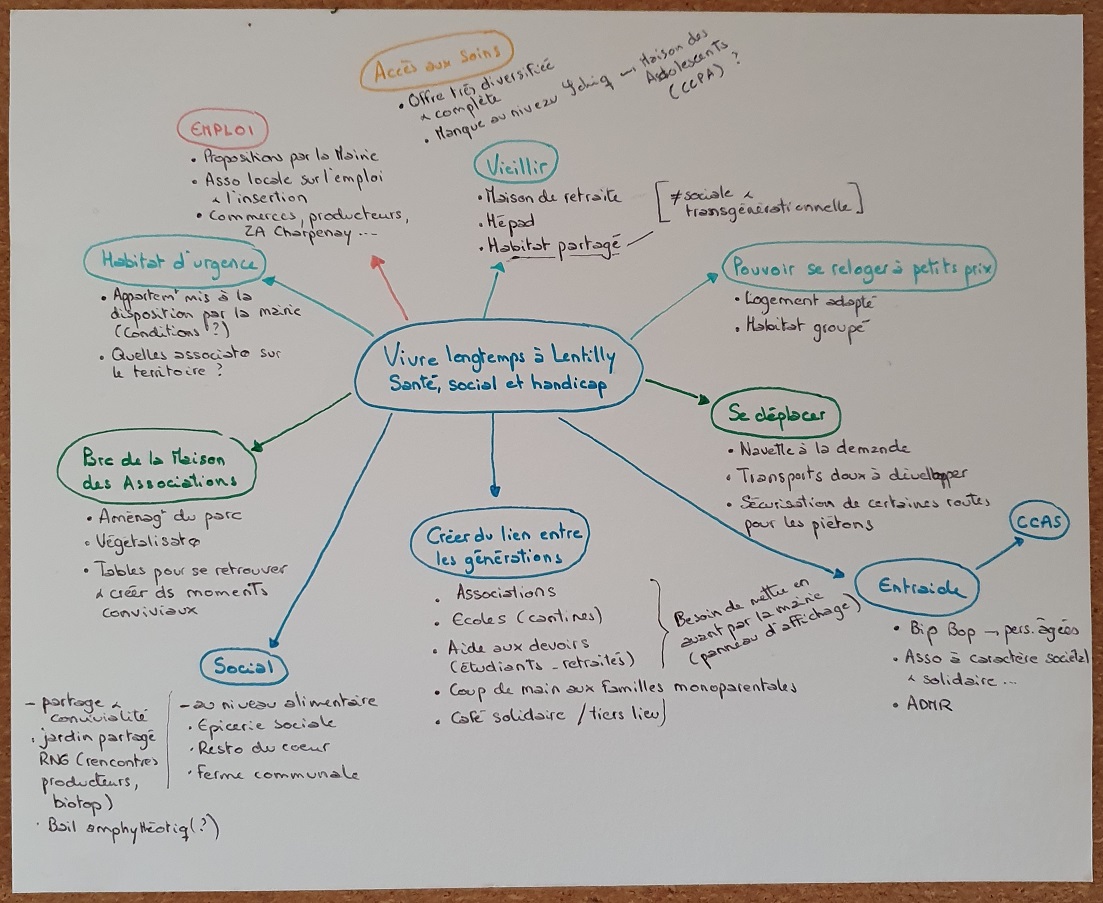 Accès aux soins
• Offre très diversifiée
& complète
• Manque au niveau Ψchiq → Maison des
Adolescents
(CCPA) ?
EMPLOI
• Propositions par la Mairie
• Asso locale sur l'emploi
& l'insertion
• Commerces, producteurs,
ZA Charpenay ...
Vieillir
• Maison de retraite
• Hépad
• Habitat partagé
[≠ sociale &
transgénérationnelle]
Habitat d'urgence
• Appartemt mis à la
disposition par la mairie
(Conditions ?)
• Quelles associatø sur
le territoire ?
Pouvoir se reloger à petits prix
• Logement adapté
• Habitat groupé
Vivre longtemps à Lentilly
Santé, social et handicap
Se déplacer
• Navette à la demande
• Transports doux à développer
• Sécurisation de certaines routes
pour les piétons
Parc de la Maison
des Associations
• Aménagt du parc
• Végétalisatø
• Tables pour se retrouver
& créer ds moments
conviviaux
Créer du lien entre
les générations
• Associations
• Ecoles (cantines)
• Aide aux devoirs
(étudiants - retraités)
• Coup de main aux familles monoparentales
• Café solidaire / tiers lieu
Besoin de mettre en
avant par la mairie
(panneau d'affichage)
CCAS
Entraide
• Bip Bop → pers. âgées
• Asso à caractère sociétal
& solidaire ...
• ADMR
Social
- partage &
convivialité
• jardin partagé
RNG (rencontres
producteurs,
biotop)
• Bail amphythéotiq (?)
- au niveau alimentaire
• Epicerie sociale
• Resto du coeur
• Ferme communale